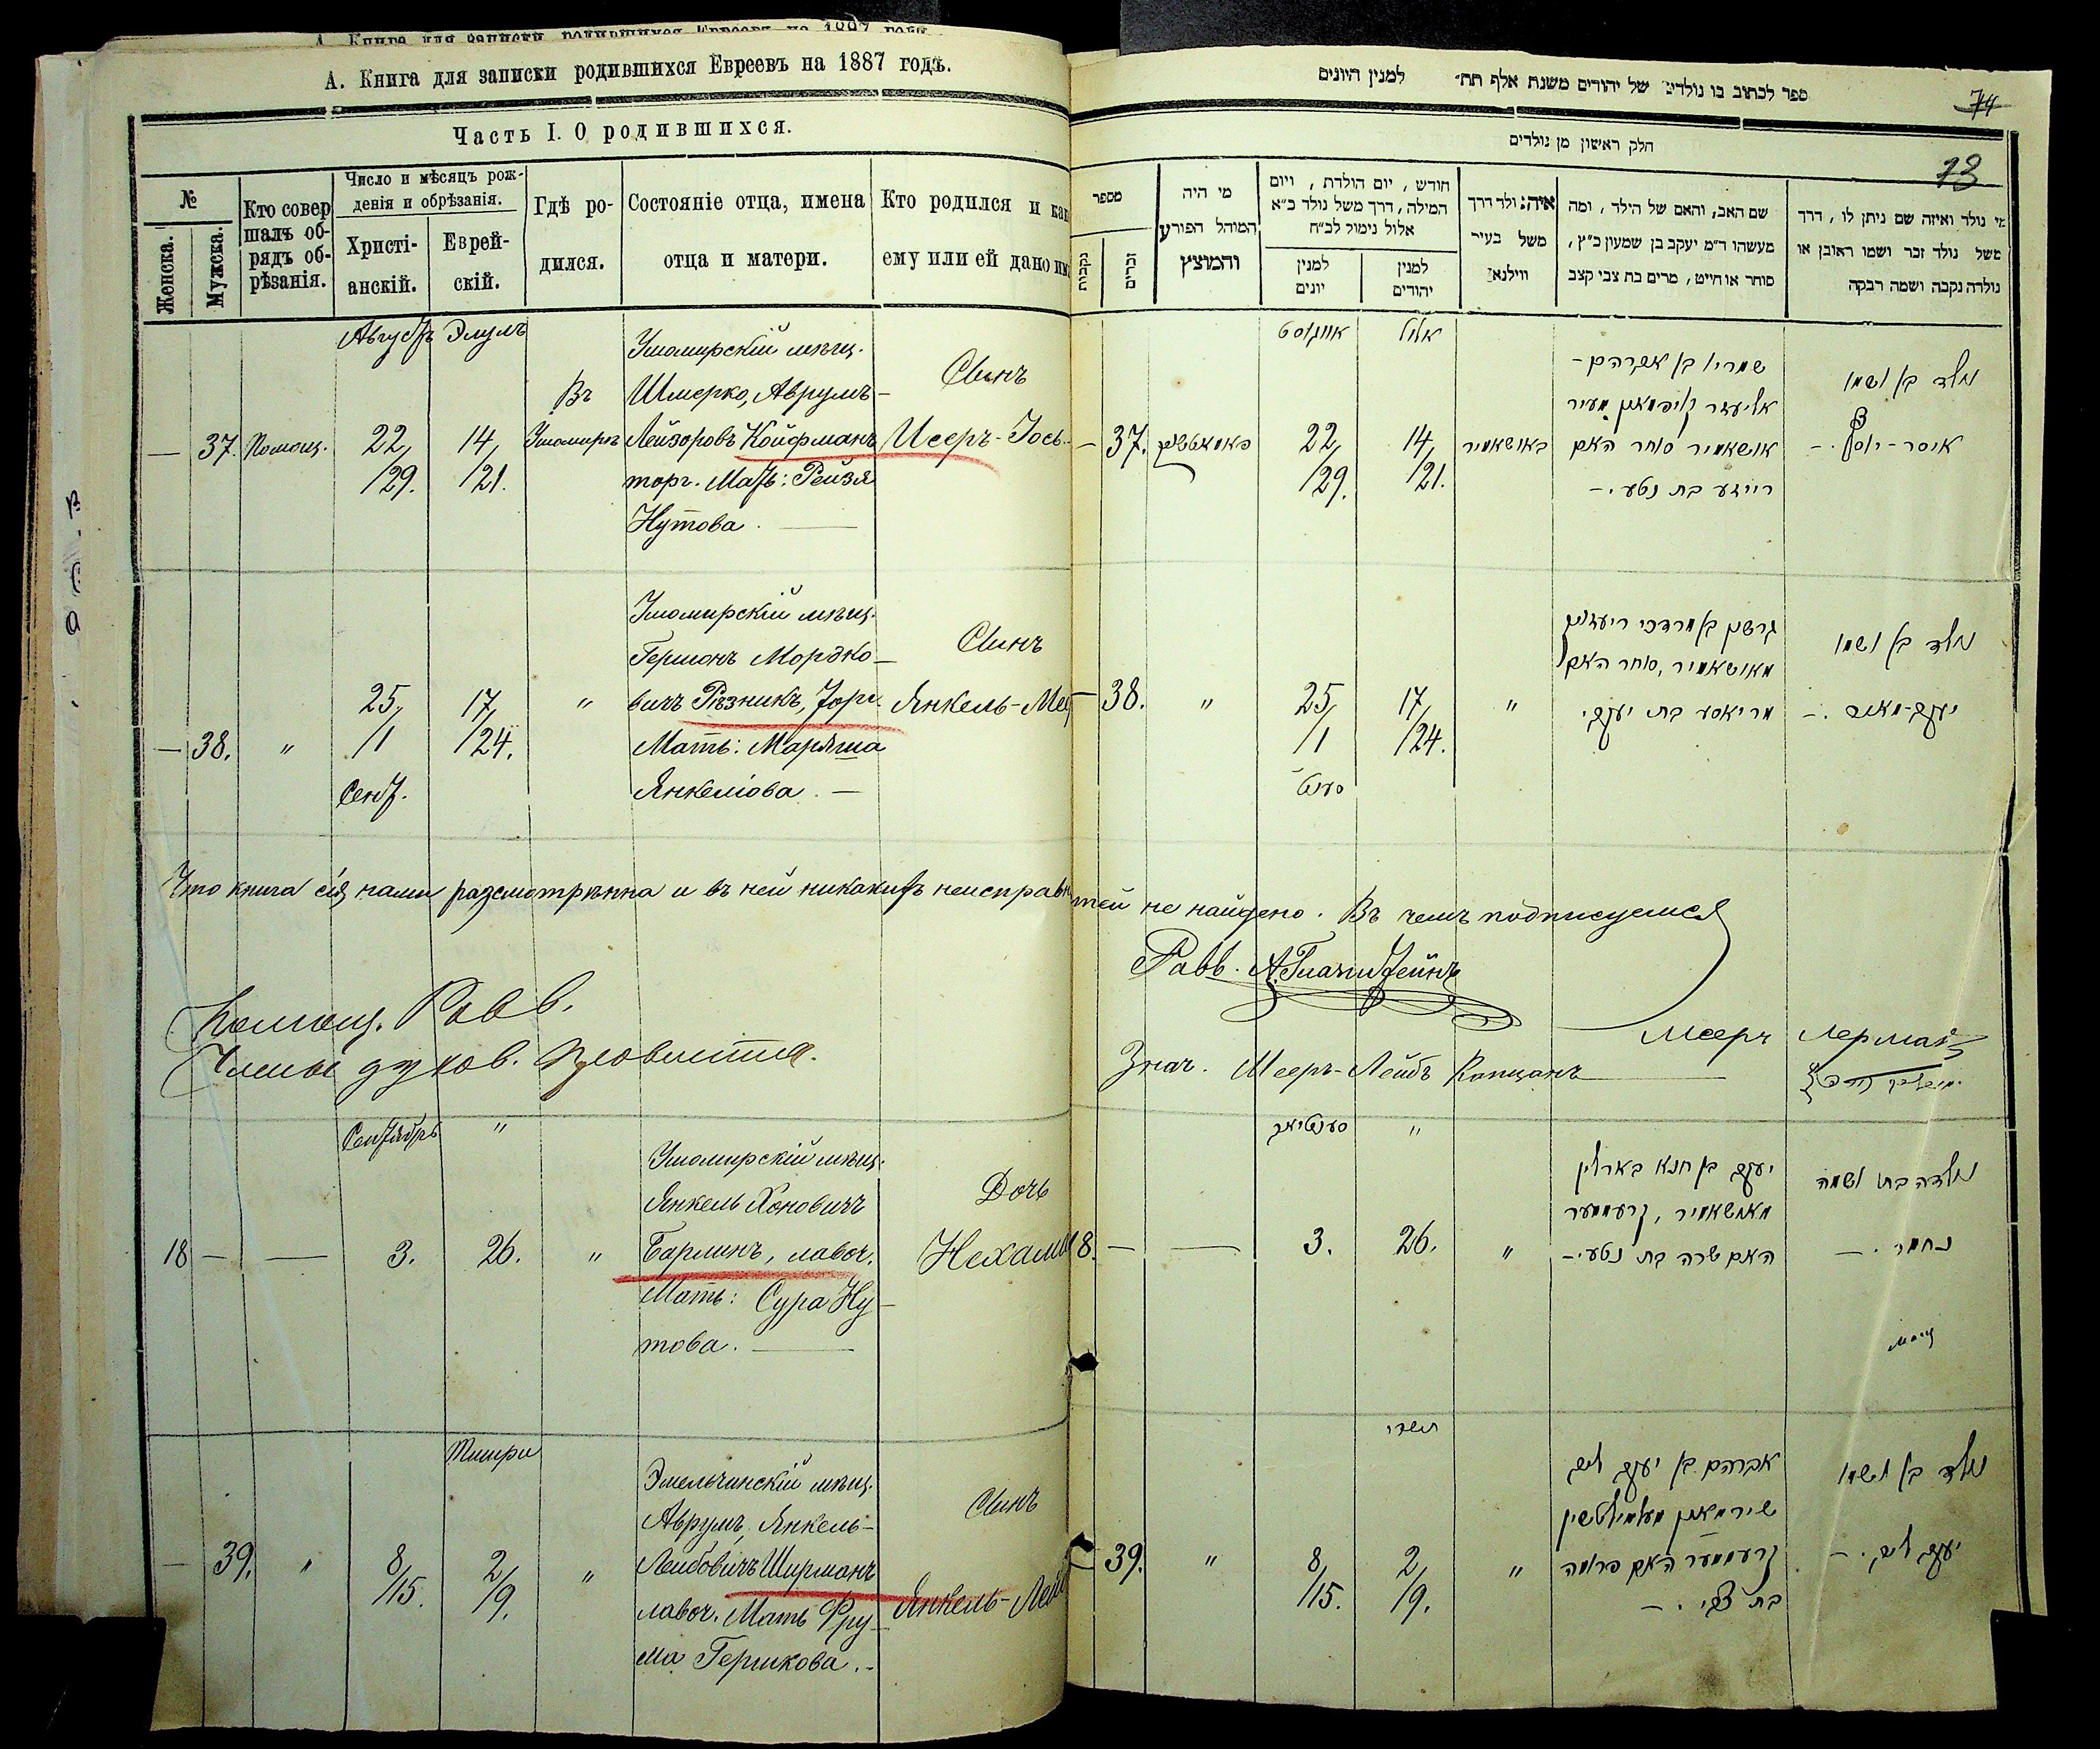 А. Книга для записки родившихся Евреевъ на 1887 годъ.
Часть I. О родившихся.
№
Женска.
Мужска.
Кто совер
шалъ об-
рядъ об-
рѣзанія.
Число и мѣсяцъ рож-
денія и обрѣзанія.
Христі-
анскій.
Еврей-
скій.
Гдѣ ро-
дился.
Состояніе отца, имена
отца и матери.
Кто родился и как
ему или ей дано им
Августъ Элулъ
— 37. Помощ. 22/29. 14/21.
Въ
Ушомиръ
Ушомирскій мѣщ.
Шмерко, Аврумъ-
Лейзоровъ Койфманъ
торг. Мать: Рейзя
Нутова. —
Сынъ
Исеръ-Іось-
— 38. " 25/1 17/24. "
Сент.
Ушомирскій мѣщ.
Гершонъ Мордко-
вичъ Рѣзникъ, торг.
Мать: Маряша
Янкелiова. —
Сынъ
Янкель-Меер
Что книга сія нами разсмотрѣнна и въ ней никакихъ неисправн
Помощ. Равв.
Члены духов. правленія.
Сентябрь "
18 — — 3. 26. "
Ушомирскій мѣщ.
Янкель Хоновичъ
Барлинъ, лавоч.
Мать: Сура Ну-
това. —
Дочь
Нехама
Тишри
— 39. " 8/15. 2/9. "
Эмельчинскій мѣщ.
Аврумъ, Янкель-
Лейбовичъ Ширманъ
лавоч. Мать Фру-
ма Гершкова. -
Сынъ
Янкель-Лей
ספר לכתוב בו נולדים של יהודים משנת אלף תת״ למנין היונים
74
73
חלק ראשון מן נולדים
מספר
נקבות
זכרים
מי היה
המוהל הפורע
והמוצץ
חודש, יום הולדת, ויום
המילה, דרך משל נולד כ״א
אלול נימול לכ״ח
למנין
יונים
למנין
יהודים
איה נולד דרך
משל בעיר
ווילנא
שם האב, והאם של הילד, ומה
מעשהו ד״מ יעקב בן שמעון כ״ץ,
סוחר או חייט, מרים בת צבי קצב
מי נולד ואיזה שם ניתן לו, דרך
משל נולד זכר ושמו ראובן או
נולדה נקבה ושמה רבקה
אויגוסט אלול
— 37. 22/29. 14/21. באושאמיר
שמריו בן אברהם -
אליעזר קויפמאן מעיר
אושאמיר סוחר האם
רייזע בת נטע. -
נולד בן ושמו
איסר-יוסף. -
— 38. " 25/1 17/24. "
סענט׳
גרשון בן מרדכי ריעזניק
מאושאמיר, סוחר האם
מריאסע בת יעקב.
נולד בן ושמו
יעקב-מאיר. -
тей не найдено. Въ чемъ подписуемся
Равв. А. Глазштейнъ
Меерь Лерман
Знач. Меерь-Лейбъ Капцанъ
סענטיאב "
18. — — 3. 26. "
יעקב בן חנא בארלין
מאושאמיר, קרעמער
האם שרה בת נטע. -
נולדה בת ושמה
נחמה. —
תשרי
— 39. " 8/15. 2/9. "
אברהם בן יעקב ליב
שירמאן מעמילטשין
קרעמער האם פרומה
בת צבי. -
נולד בן ושמו
יעקב ליב. -